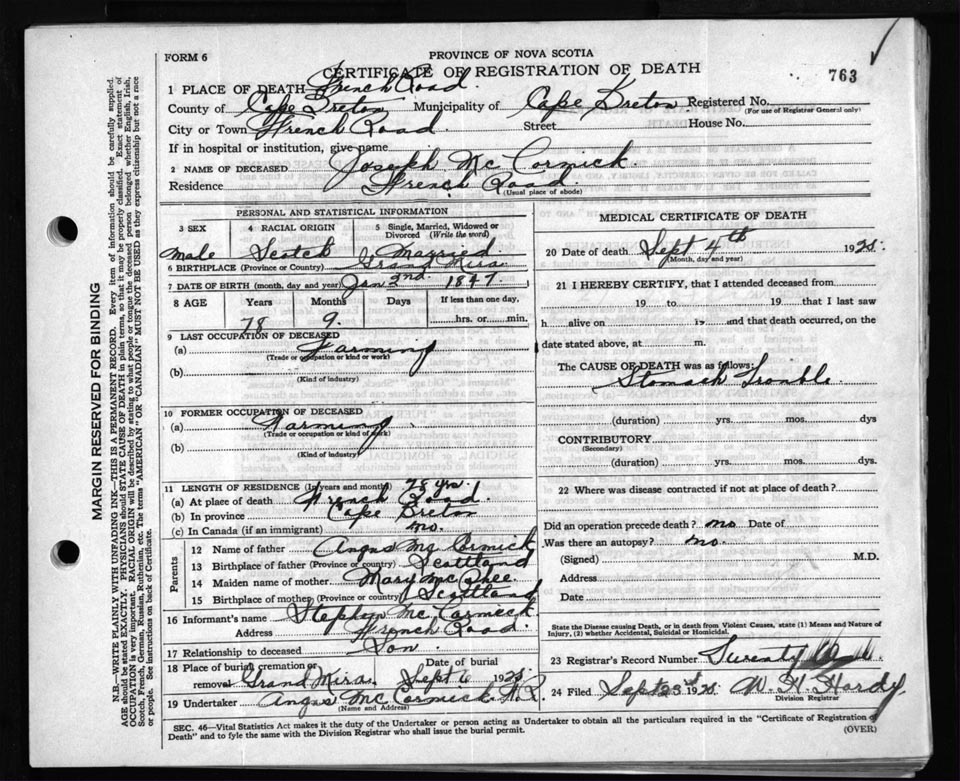 FORM 6
PROVINCE OF NOVA SCOTIA
CERTIFICATE OF REGISTRATION OF DEATH
763
1 PLACE OF DEATH French Road.
County of Cape Breton Municipality of Cape Breton Registered No.
(For use of Registrar General only)
City or Town French Road. Street House No.
If in hospital or institution, give name
2 NAME OF DECEASED Joseph Mc Cormick.
Residence French Road.
(Usual place of abode)
PERSONAL AND STATISTICAL INFORMATION
3 SEX 4 RACIAL ORIGIN 5 Single, Married, Widowed or Divorced (Write the word)
male Scotch Married
6 BIRTHPLACE (Province or Country) Grand Mira
7 DATE OF BIRTH (month, day and year) Jan 2nd. 1847.
8 AGE Years Months Days If less than one day,
78 9. hrs. or min.
9 LAST OCCUPATION OF DECEASED
(a) Farming
(Trade or occupation or kind or work)
(b)
(Kind of industry)
10 FORMER OCCUPATION OF DECEASED
(a) Farming
(Trade or occupation or kind of work)
(b)
(Kind of industry)
11 LENGTH OF RESIDENCE (In years and months) 78 yrs.
(a) At place of death French Road.
(b) In province Cape Breton
(c) In Canada (if an immigrant) no.
Parents
12 Name of father Angus Mc Cormick
13 Birthplace of father (Province or country) Scottland
14 Maiden name of mother Mary McPhee
15 Birthplace of mother (Province or country) Scottland
16 Informant's name Stephen Mc Cormick
Address French Road.
17 Relationship to deceased Son.
18 Place of burial cremation or removal Grand Mira. Date of burial Sept 6 1925
19 Undertaker Angus McCormick F.R.
(Name and Address)
MEDICAL CERTIFICATE OF DEATH
20 Date of death Sept 4th 1925.
(Month, day and year)
21 I HEREBY CERTIFY, that I attended deceased from
19 to 19 that I last saw
h alive on 19 and that death occurred, on the
date stated above, at m.
The CAUSE OF DEATH was as follows:
Stomach Trouble
(duration) yrs. mos. dys
CONTRIBUTORY
(Secondary)
(duration) yrs. mos. dys.
22 Where was disease contracted if not at place of death?
Did an operation precede death? no Date of
Was there an autopsy? no.
(Signed) M.D.
Address
Date
State the Disease causing Death, or in death from Violent Causes, state (1) Means and Nature of Injury, (2) whether Accidental, Suicidal or Homicidal.
23 Registrar's Record Number Twenty
24 Filed Sept 23rd 1925 W. H. Hardy.
Division Registrar
SEC. 46—Vital Statistics Act makes it the duty of the Undertaker or person acting as Undertaker to obtain all the particulars required in the "Certificate of Registration of
Death" and to fyle the same with the Division Registrar who shall issue the burial permit.
(OVER)
MARGIN RESERVED FOR BINDING
N.B.—WRITE PLAINLY WITH UNFADING INK—THIS IS A PERMANENT RECORD. Every item of information should be carefully supplied.
AGE should be stated EXACTLY. PHYSICIANS should STATE CAUSE OF DEATH in plain terms, so that it may be properly classified. Exact statement of
OCCUPATION is very important. RACIAL ORIGIN will be described by stating to what people or tongue the deceased person belonged whether English, Irish,
Scotch, French, German, Russian, Ruthenian, etc. The terms "AMERICAN" OR "CANADIAN" MUST NOT BE USED as they express citizenship but not a race
or people. See instructions on back of Certificate.